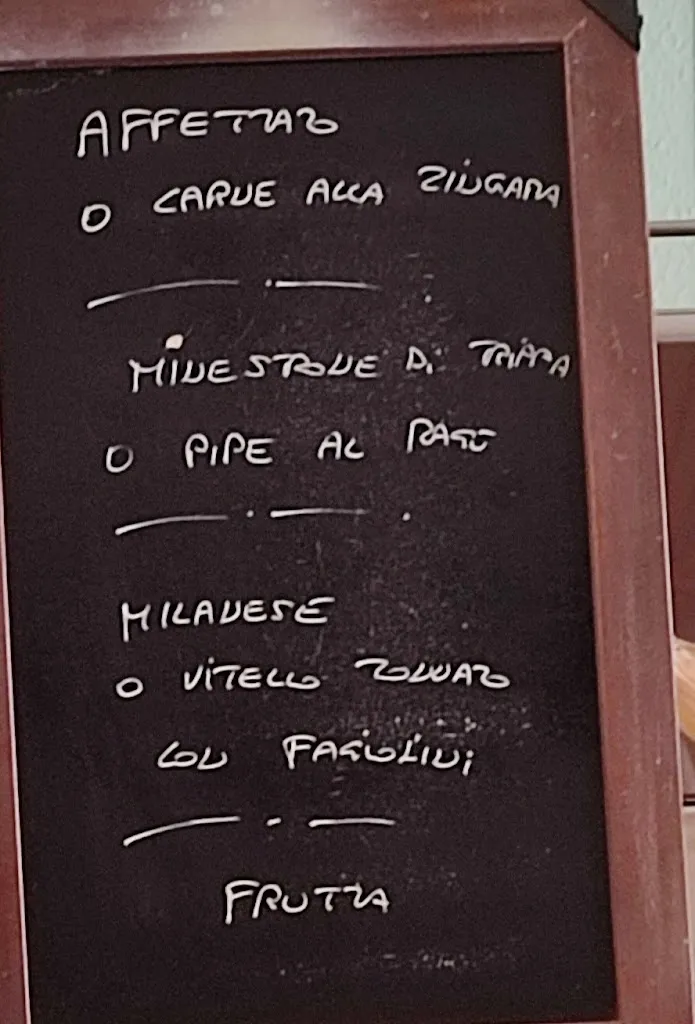 AFFETTATO
O CARNE ALLA ZINGARA
MINESTRONE DI TRIPPA
O PIPE AL RAGÙ
MILANESE
O VITELLO TONNATO
CON FAGIOLINI
FRUTTA